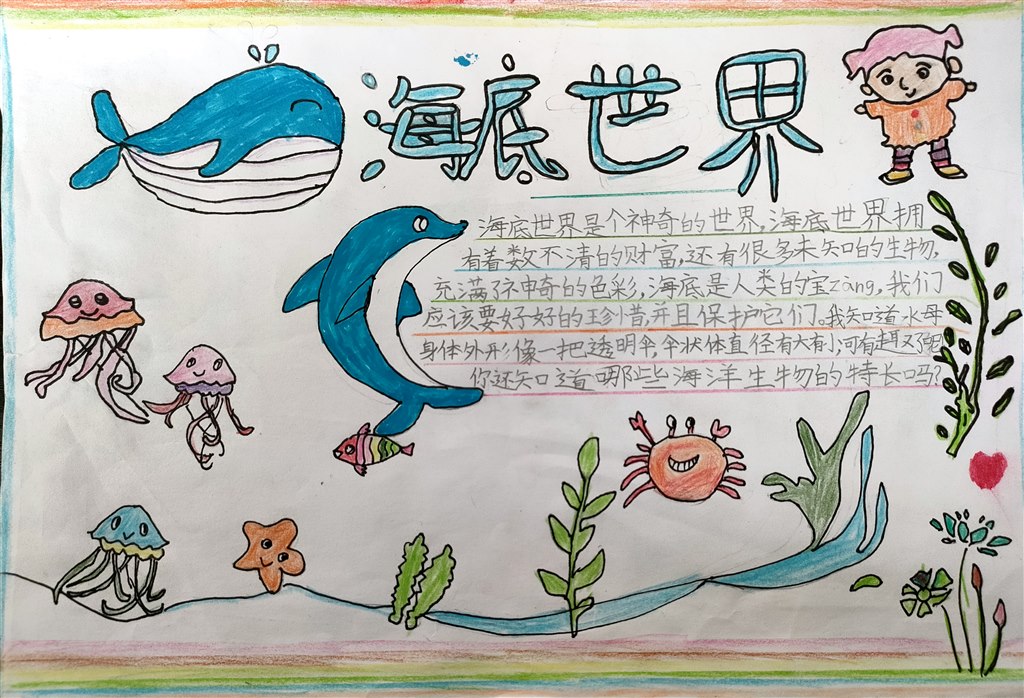 海底世界
海底世界是个神奇的世界,海底世界拥
有着数不清的财富,还有很多未知的生物,
充满了神奇的色彩,海底是人类的宝zàng,我们
应该要好好的珍惜,并且保护它们。我知道水母
身体外形像一把透明伞,伞状体直径有大有小,可有趣了呢
你还知道哪些海洋生物的特长吗?